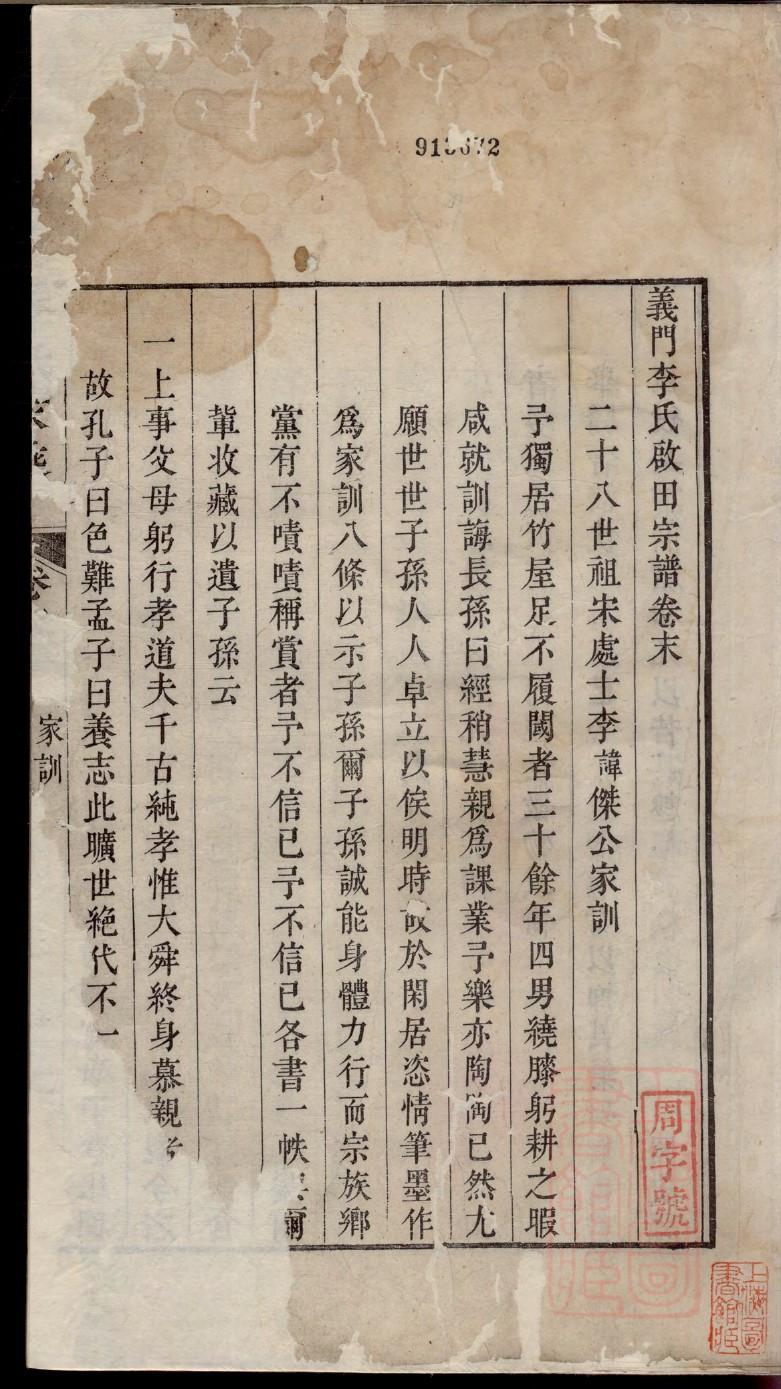 913672
義門李氏啟田宗譜卷末
周字號
二十八世祖宋處士李諱傑公家訓
予獨居竹屋足不履閾者三十餘年四男繞膝躬耕之暇
咸就訓誨長孫曰經稍慧親為課業予樂亦陶陶已然尤
願世世子孫人人卓立以俟明時故於閑居恣情筆墨作
為家訓八條以示子孫爾子孫誠能身體力行而宗族鄉
黨有不嘖嘖稱賞者予不信已予不信已各書一帙 爾
輩收藏以遺子孫云
一上事父母躬行孝道夫千古純孝惟大舜終身慕親
故孔子曰色難孟子曰養志此曠世絕代不一
卷
家訓
上海圖書館藏